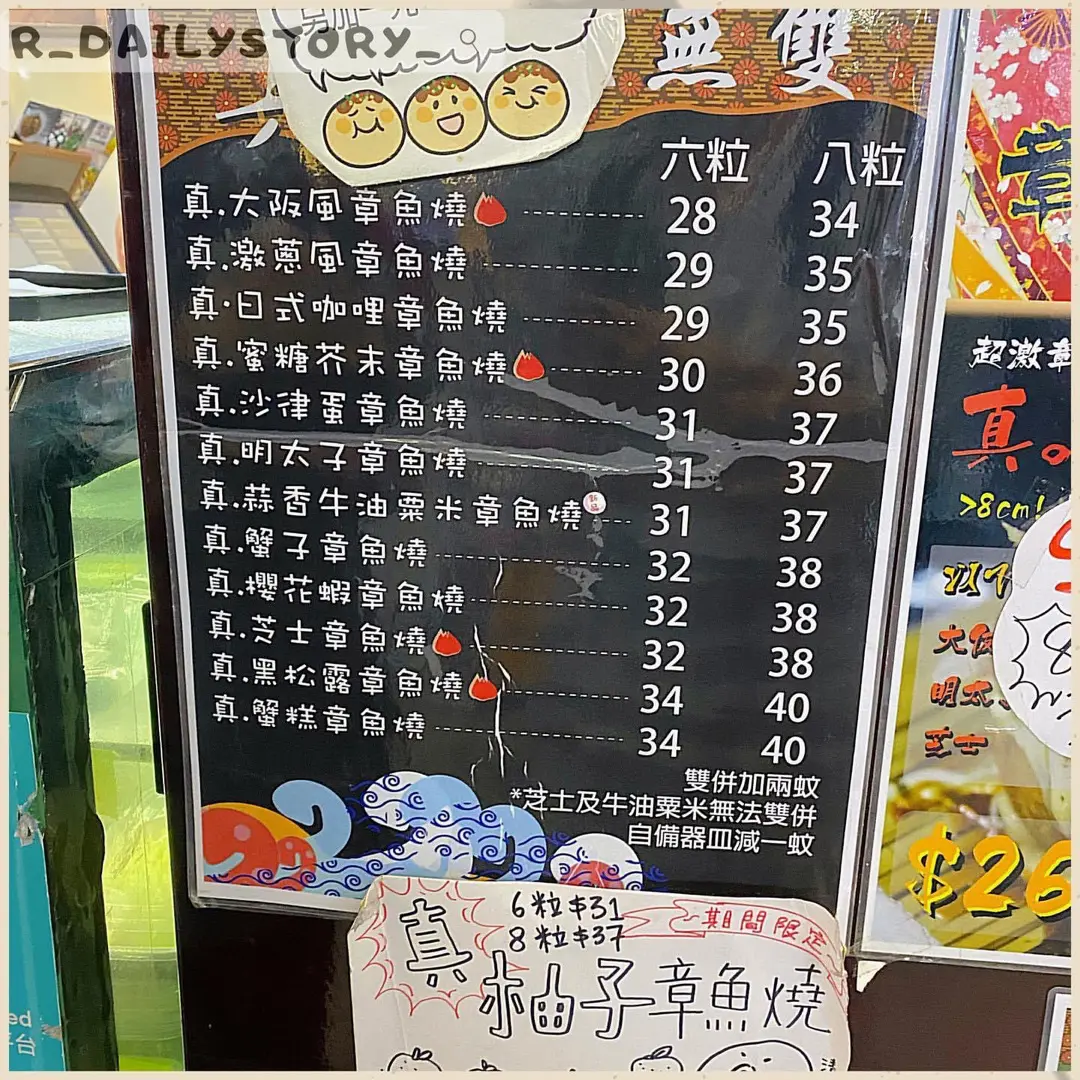 R_DAILYSTORY_
另加一元
無雙
六粒 八粒
真.大阪風章魚燒 28 34
真.激蔥風章魚燒 29 35
真.日式咖哩章魚燒 29 35
真.蜜糖芥末章魚燒 30 36
真.沙律蛋章魚燒 31 37
真.明太子章魚燒 31 37
真.蒜香牛油粟米章魚燒 新品 31 37
真.蟹子章魚燒 32 38
真.櫻花蝦章魚燒 32 38
真.芝士章魚燒 32 38
真.黑松露章魚燒 34 40
真.蟹糕章魚燒 34 40
雙併加兩蚊
*芝士及牛油粟米無法雙併
自備器皿減一蚊
真 6粒$31
8粒$37
期間限定
柚子章魚燒
章
超激章
真。
>8cm!
以下
大阪
明太
芝士
$26
ed
台